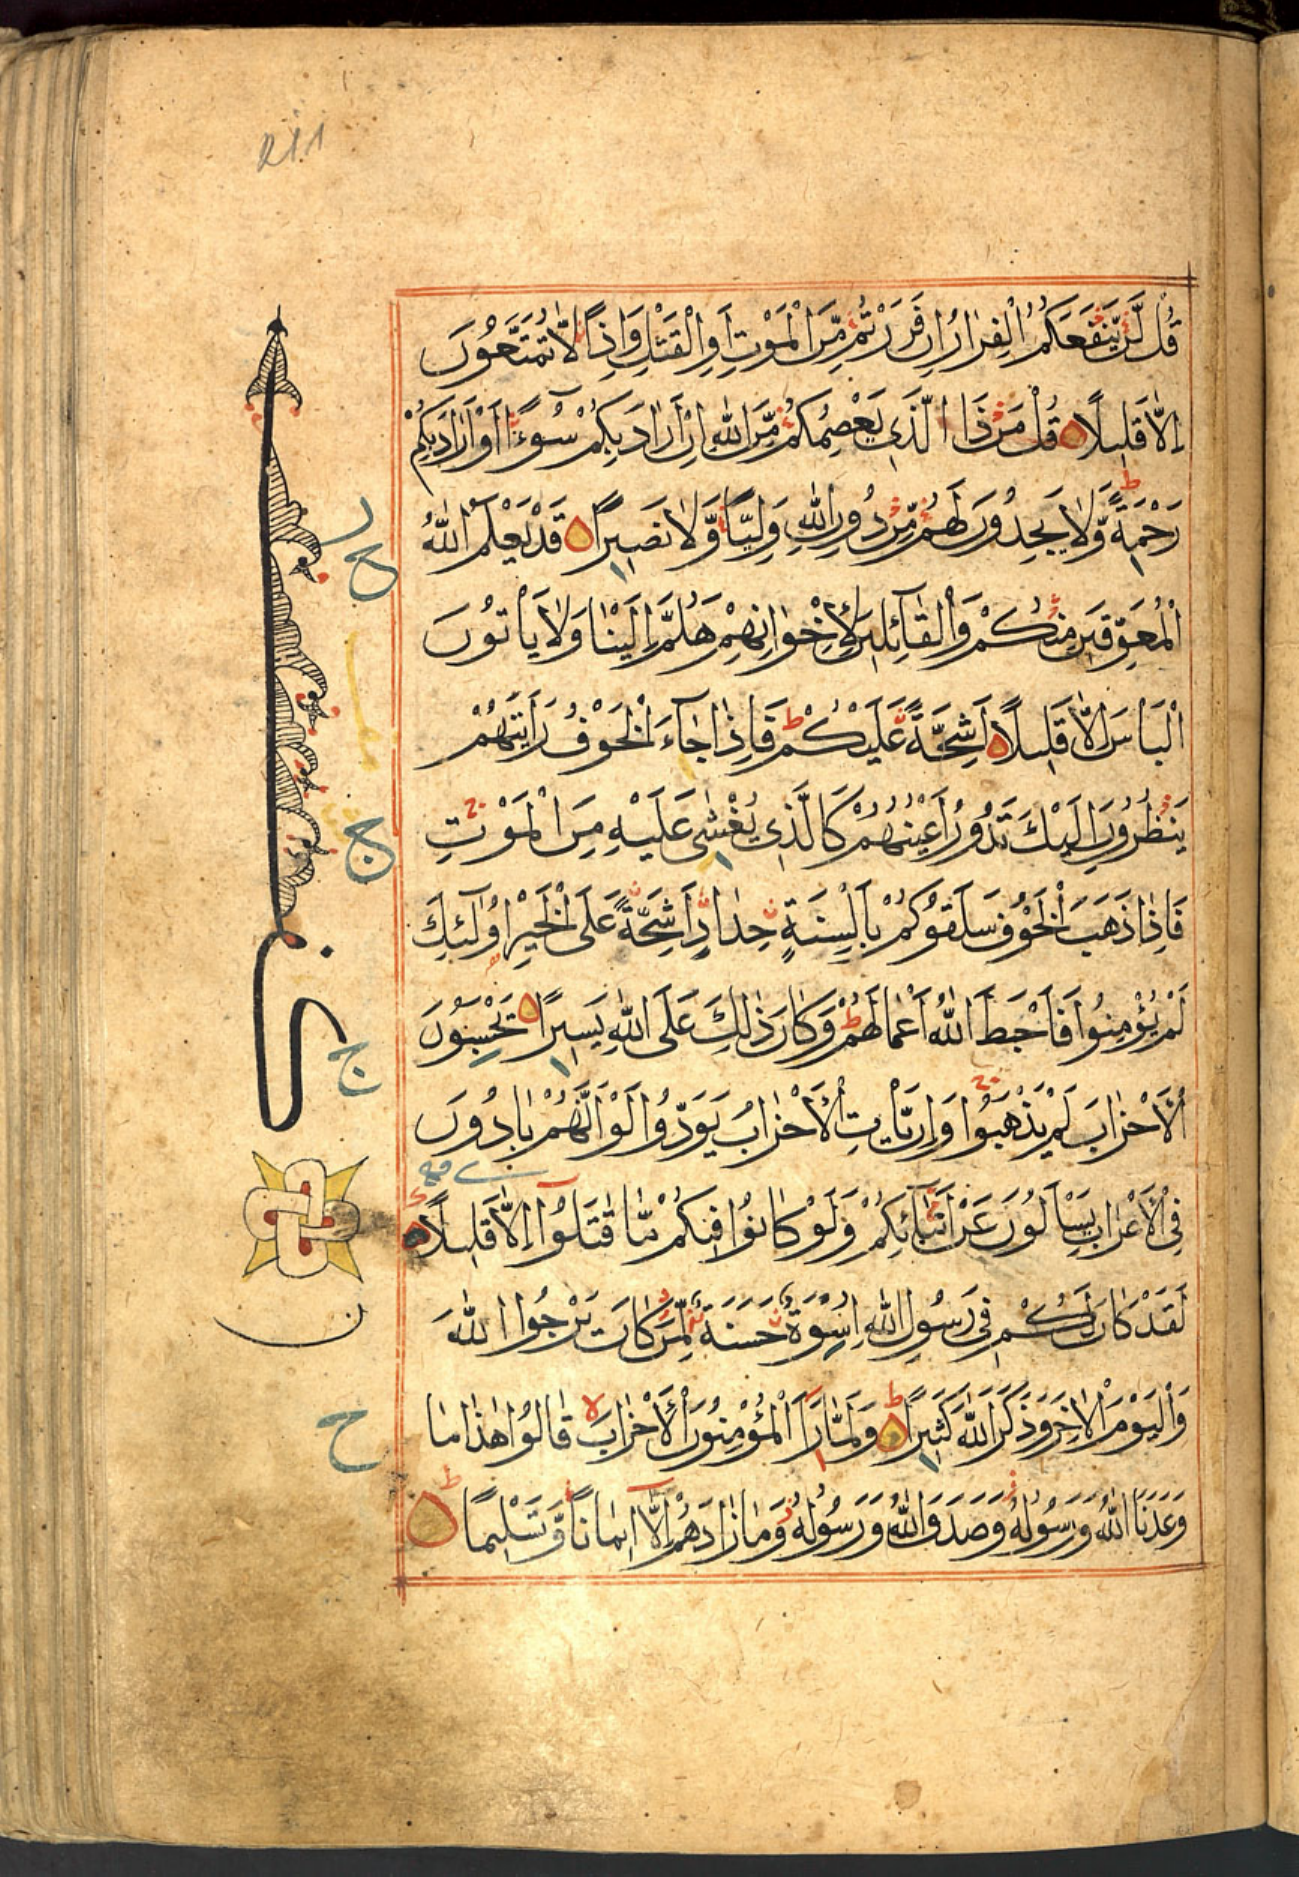 قُل لَّن يَّنفَعَكُمُ الْفِرَارُ اِن فَرَرْتُم مِّنَ الْمَوْتِ اَوِ الْقَتْلِ وَاِذًا لَّا تُمَتَّعُونَ
اِلَّا قَلِيلًا قُلْ مَن ذَا الَّذِي يَعْصِمُكُم مِّنَ اللّٰهِ اِنْ اَرَادَ بِكُمْ سُوءًا اَوْ اَرَادَ بِكُمْ
رَحْمَةً وَّلَا يَجِدُونَ لَهُم مِّن دُونِ اللّٰهِ وَلِيًّا وَّلَا نَصِيرًا قَدْ يَعْلَمُ اللّٰهُ
الْمُعَوِّقِينَ مِنكُمْ وَالْقَآئِلِينَ لِاِخْوَانِهِمْ هَلُمَّ اِلَيْنَا وَلَا يَاْتُونَ
الْبَاْسَ اِلَّا قَلِيلًا اَشِحَّةً عَلَيْكُمْ فَاِذَا جَآءَ الْخَوْفُ رَاَيْتَهُمْ
يَنظُرُونَ اِلَيْكَ تَدُورُ اَعْيُنُهُمْ كَالَّذِي يُغْشٰى عَلَيْهِ مِنَ الْمَوْتِ
فَاِذَا ذَهَبَ الْخَوْفُ سَلَقُوكُمْ بِاَلْسِنَةٍ حِدَادٍ اَشِحَّةً عَلَى الْخَيْرِ اُولٰٓئِكَ
لَمْ يُؤْمِنُوا فَاَحْبَطَ اللّٰهُ اَعْمَالَهُمْ وَكَانَ ذٰلِكَ عَلَى اللّٰهِ يَسِيرًا يَحْسِبُونَ
الْاَحْزَابَ لَمْ يَذْهَبُوا وَاِن يَّاْتِ الْاَحْزَابُ يَوَدُّوا لَوْ اَنَّهُم بَادُونَ
فِي الْاَعْرَابِ يَسْاَلُونَ عَنْ اَنبَآئِكُمْ وَلَوْ كَانُوا فِيكُم مَّا قَاتَلُوٓا اِلَّا قَلِيلًا
لَقَدْ كَانَ لَكُمْ فِي رَسُولِ اللّٰهِ اِسْوَةٌ حَسَنَةٌ لِّمَن كَانَ يَرْجُوا اللّٰهَ
وَالْيَوْمَ الْاٰخِرَ وَذَكَرَ اللّٰهَ كَثِيرًا وَلَمَّا رَاَ الْمُؤْمِنُونَ الْاَحْزَابَ قَالُوا هٰذَا مَا
وَعَدَنَا اللّٰهُ وَرَسُولُهُ وَصَدَقَ اللّٰهُ وَرَسُولُهُ وَمَا زَادَهُمْ اِلَّآ اِيمَانًا وَّتَسْلِيمًا